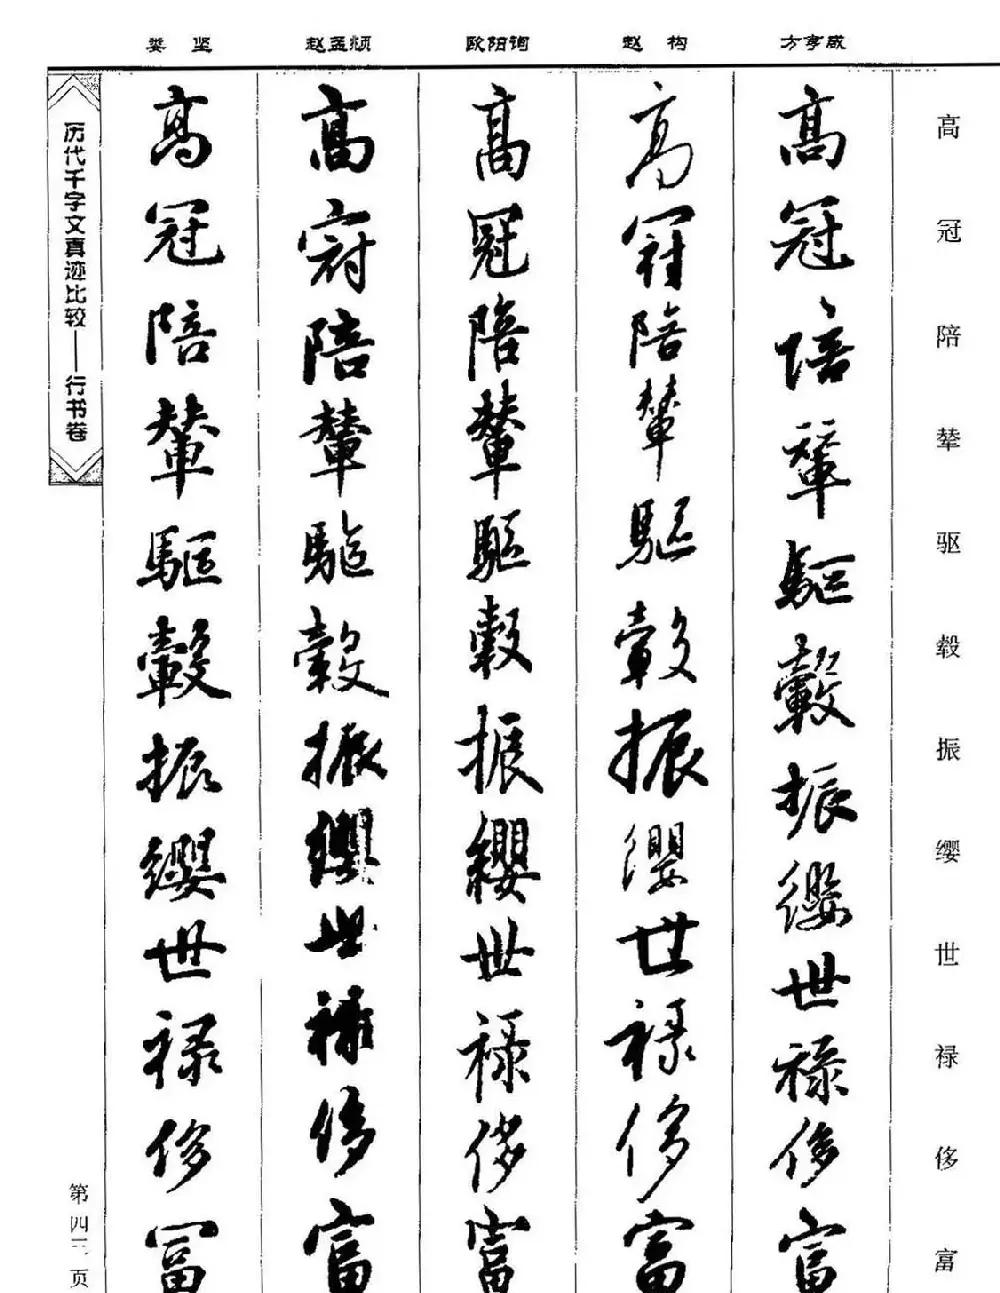 娄坚 赵孟頫 欧阳询 赵构 方亨咸
历代千字文真迹比较——行书卷
高冠陪辇驱毂振缨世禄侈富
高冠陪輦驅轂振纓世禄侈富
高冠陪輦驅轂振纓世禄侈富
高冠陪輦驅轂振纓世禄侈富
高冠陪輦驅轂振纓世禄侈富
高冠陪輦驅轂振纓世禄侈富
第四三页